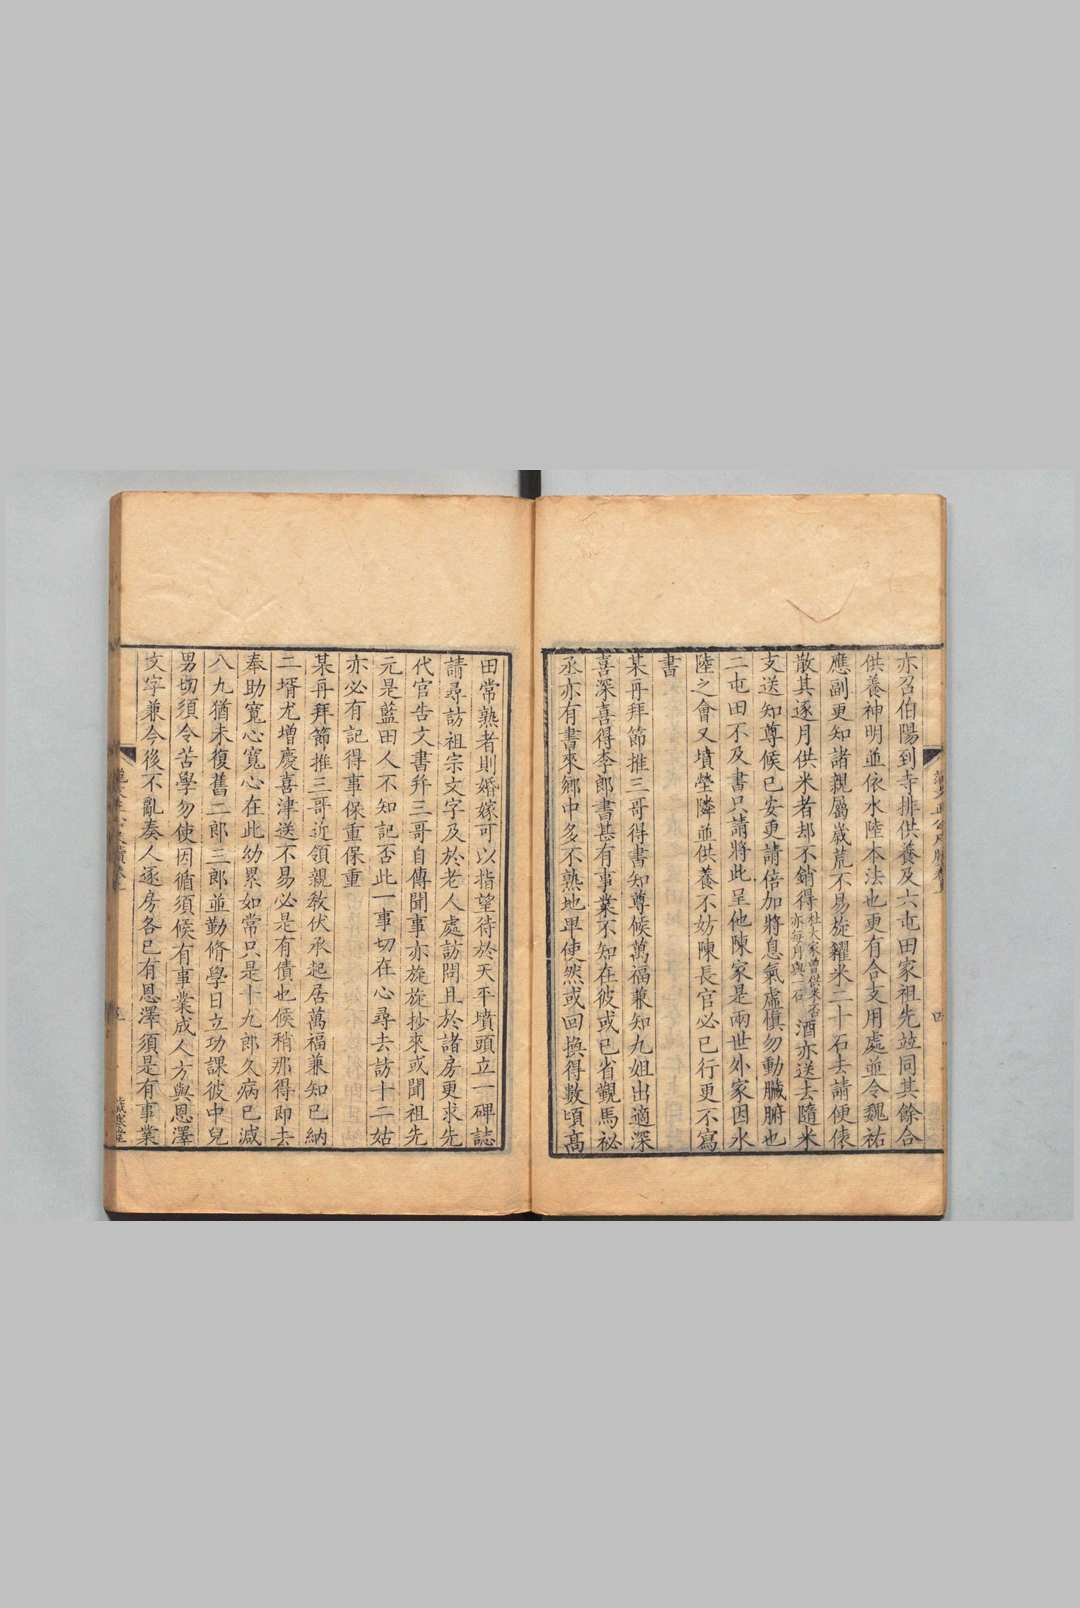 亦召伯陽到寺排供養及六屯田家祖先竝同其餘合
供養神明並依水陸本法也更有合支用處並令魏祐
應副更知諸親屬歲荒不易旋糴米二十石去請便俵
散其逐月供米者却不銷得杜大家曾供米否亦每月與一石酒亦送去隨米
支送知尊候已安更請倍加將息氣虛慎勿動臟腑也
二屯田不及書只請將此呈他陳家是兩世外家因水
陸之會又墳塋隣並供養不妨陳長官必已行更不寫
書
某再拜節推三哥得書知尊候萬福兼知九姐出適深
喜深喜得李郎書甚有事業不知在彼或已省觀馬祕
丞亦有書來鄉中多不熟地卑使然或回換得數頃高
田常熟者則婚嫁可以指望待於天平墳頭立一碑誌
請尋訪祖宗文字及於老人處訪問且於諸房更求先
代官告文書幷三哥自傳聞事亦旋旋抄來或聞祖先
元是藍田人不知記否此一事切在心尋去訪十二姑
亦必有記得事保重保重
某再拜節推三哥近領親敎伏承起居萬福兼知已納
二壻尤增慶喜津送不易必是有債也候稍那得即去
奉助寬心寬心在此幼累如常只是十九郎久病已減
八九猶未復舊二郎三郎並勤脩學日立功課彼中兒
男切須令苦學勿使因循須候有事業成人方與恩澤
文字兼今後不亂奏人逐房各已有恩澤須是有事業